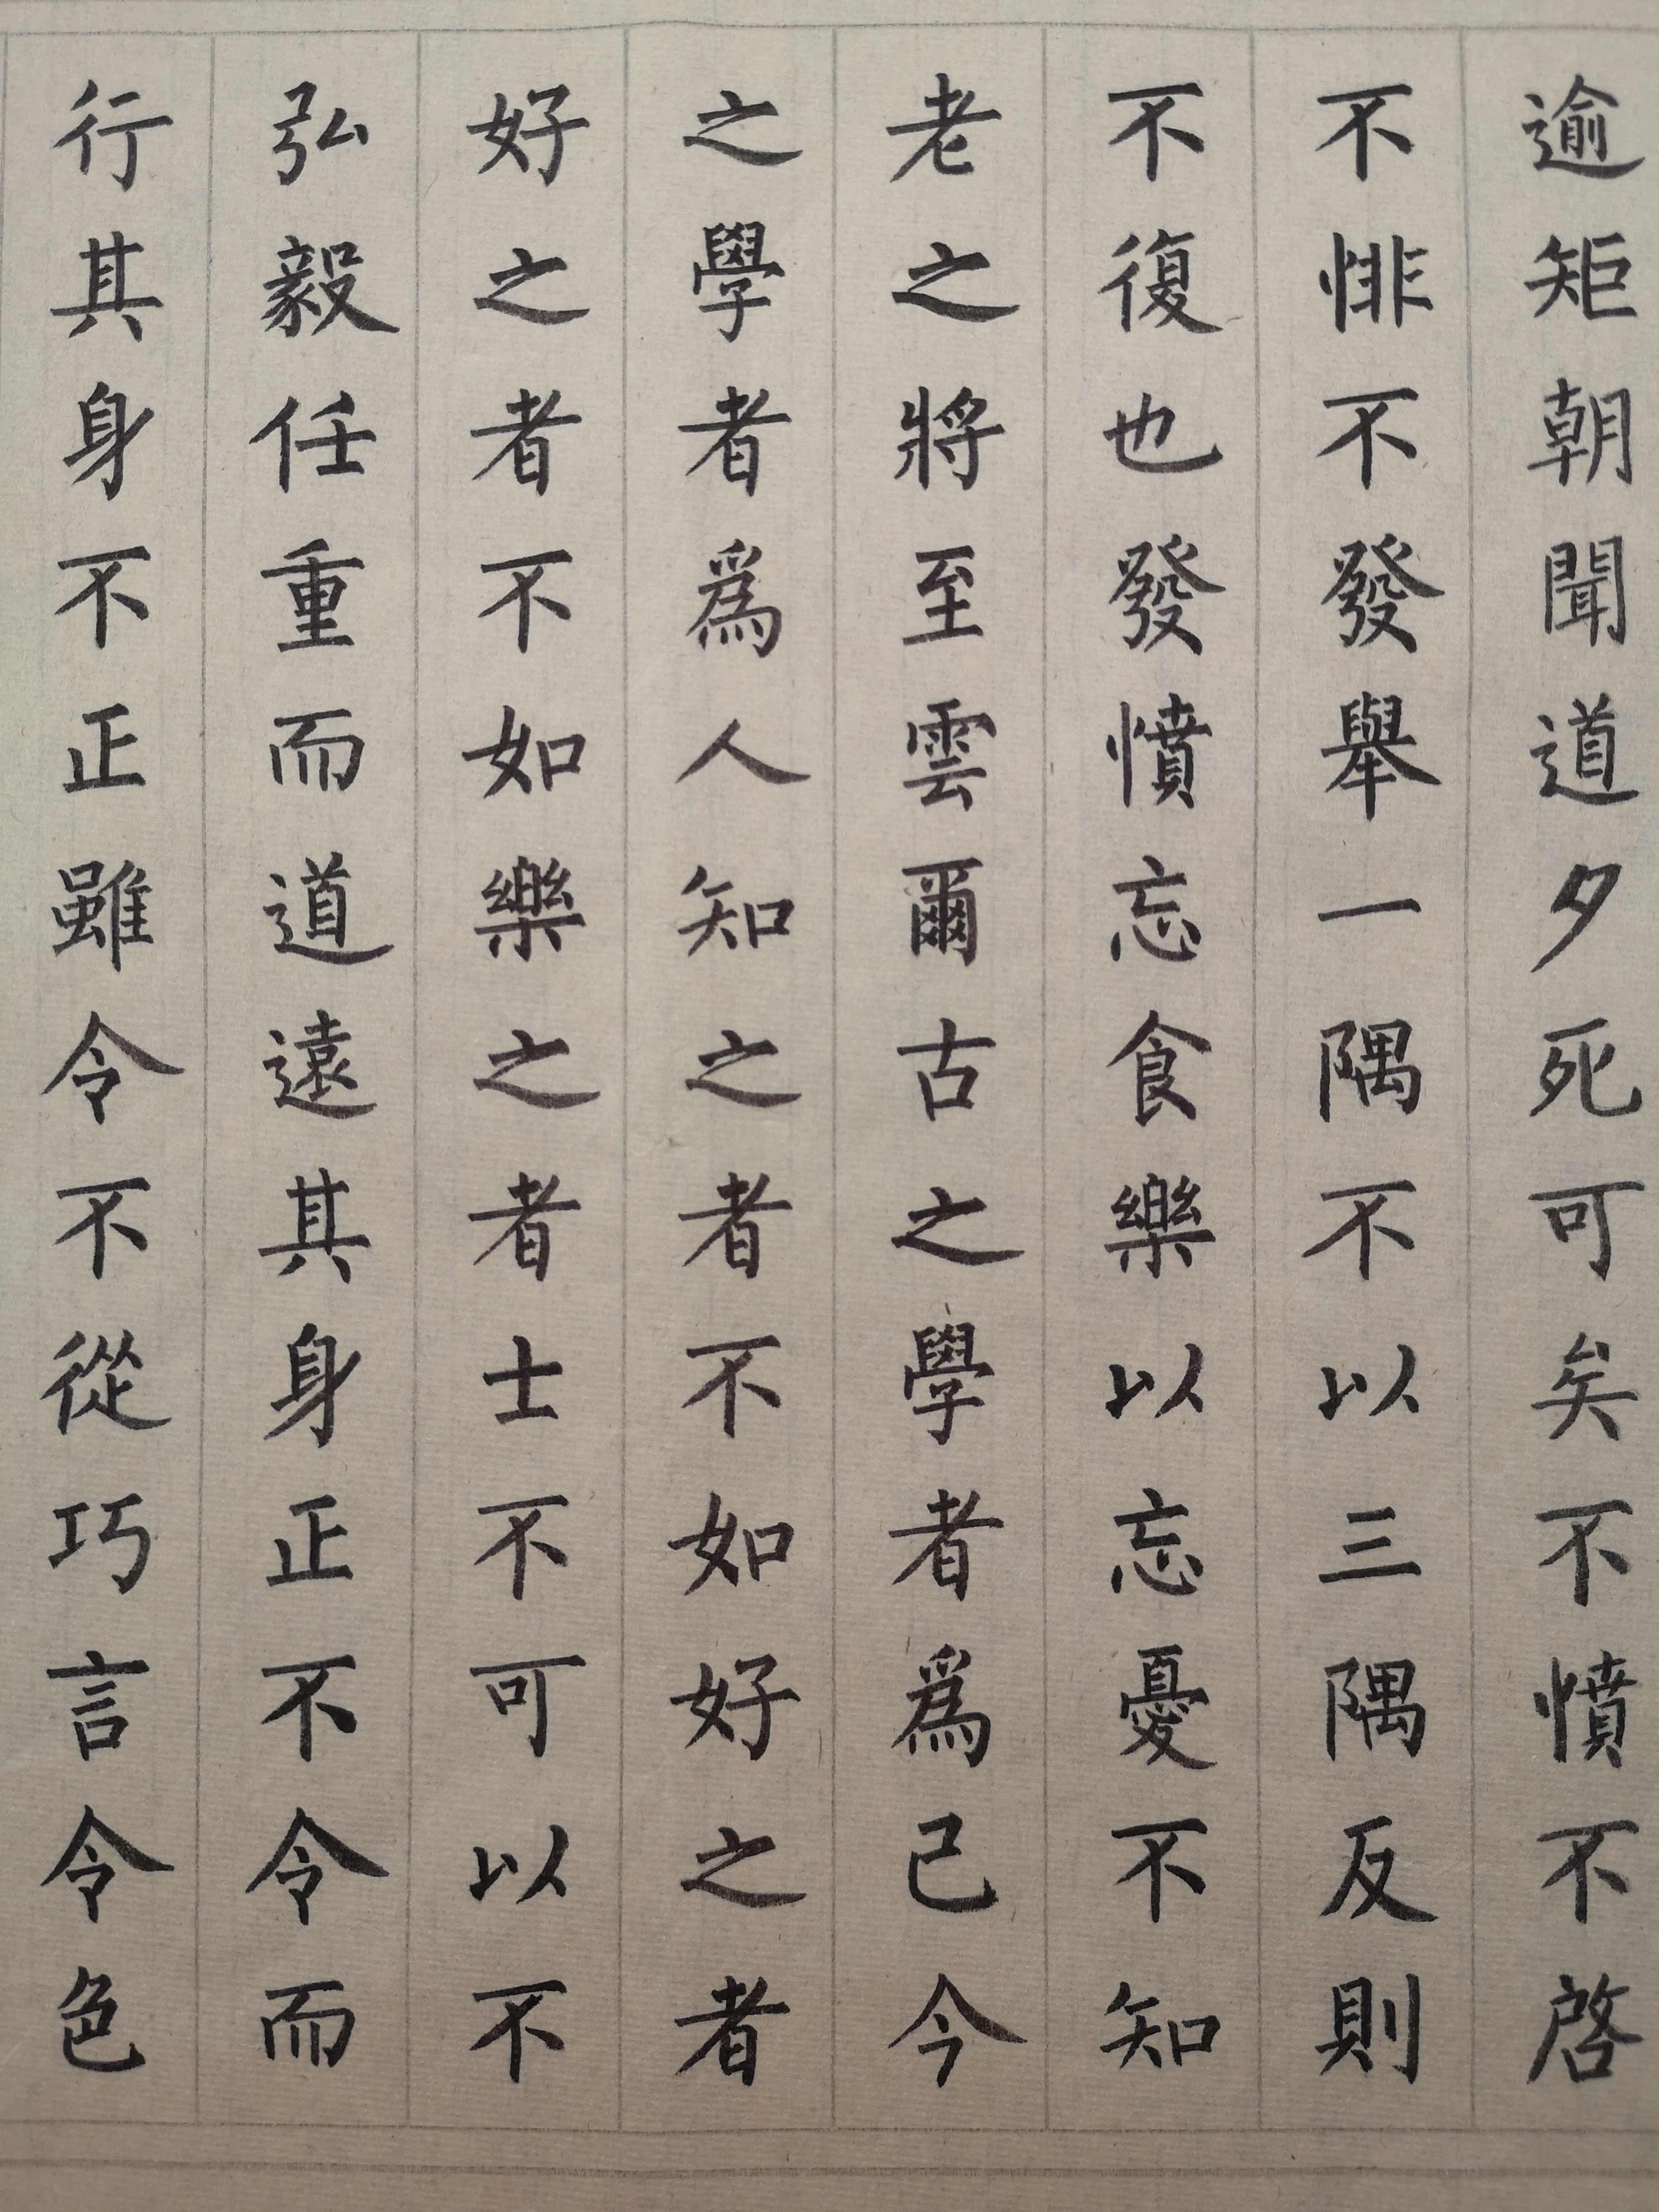 逾矩朝聞道夕死可矣不憤不啓
不悱不發舉一隅不以三隅反則
不復也發憤忘食樂以忘憂不知
老之將至雲爾古之學者爲己今
之學者爲人知之者不如好之者
好之者不如樂之者士不可以不
弘毅任重而道遠其身正不令而
行其身不正雖令不從巧言令色